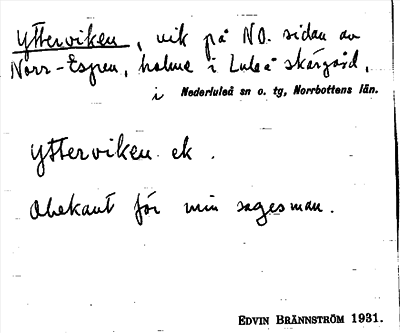 Ytterviken, vik på NO. sidan av
Norr-Espen, holme i Luleå skärgård,
i Nederluleå sn o. tg, Norrbottens län.
Ytterviken ek.
Obekant för min sagesman.
EDVIN BRÄNNSTRÖM 1931.